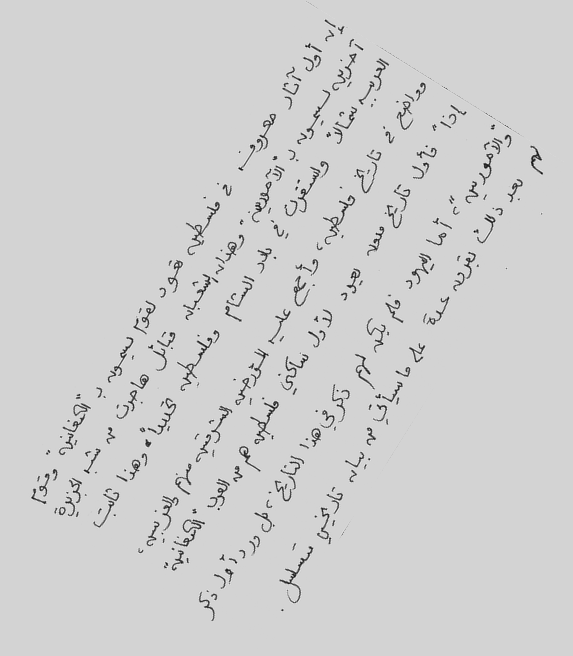 إن أول آثار معروف في فلسطين هود لقوم يسمون ب "الكنعانين" وقوم
آخرين يسمون ب "الآمورين" وهذان الشعبان قبائل هاجرت من شبه الجزيرة
العربيه شمالاً واستقرت في بلاد الشام وفلسطين تحديداً، وهذا ثابت
وواضح في تاريخ فلسطين، وأجمع عليه المؤرخين الشرقين منهم والغربين،
إذاً فأول تاريخ مدون يعود لأول ساكني فلسطين هم من العرب "الكنعانين"
و"الآمورين"، أما اليهود فلم يكن لهم ذكر في هذا التاريخ، بل ورد أول ذكر
لهم بعد ذلك بقرون عدة على ما سيأتي من بيان تاريخي متسلسل.